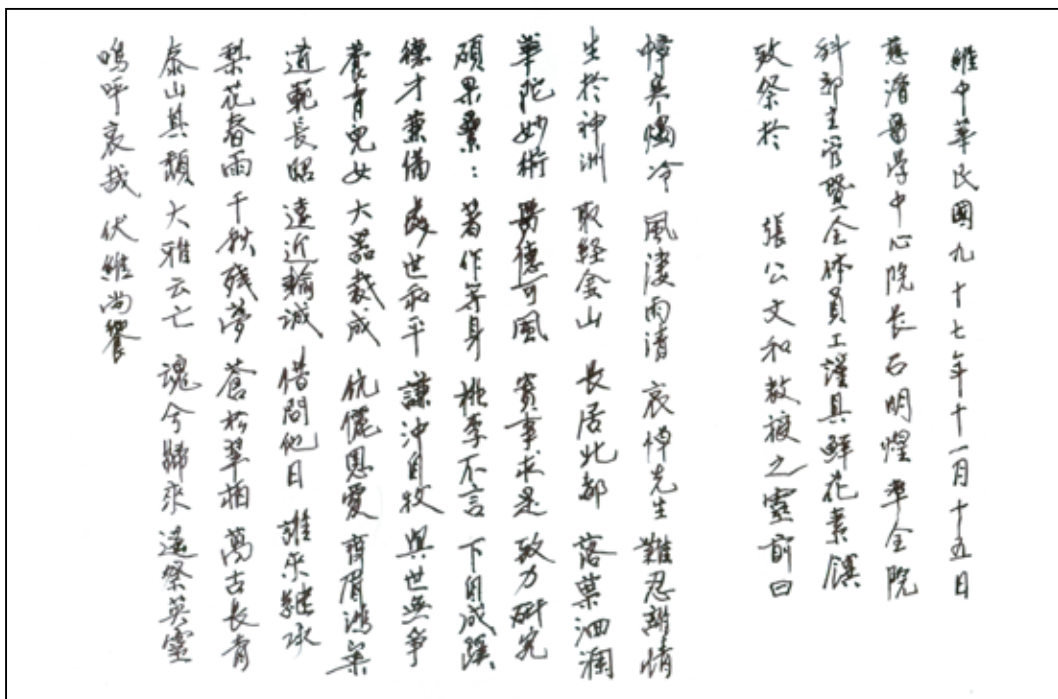 維中華民國九十七年十一月十五日
慈濟醫學中心院長石明煌率全院
科部主管暨全体員工謹具鮮花素饌
致祭於 張公文和教授之靈前曰
幃奠燭冷 風淒雨清 哀悼先生 難忍離情
生於神洲 取経金山 長居北都 落葉洄瀾
華陀妙術 醫德可風 實事求是 致力研究
碩果纍: 著作等身 桃李不言 下自成蹊
德才兼備 處世和平 謙沖自牧 與世無爭
養育兒女 大器裁成 伉儷恩愛 齊眉鴻案
道範長昭 遠近輸誠 借問他日 誰來継承
梨花春雨 千秋殘夢 蒼松翠柏 萬古長青
泰山其頹 大雅云亡 魂兮歸來 遙祭英靈
嗚呼哀哉 伏維尚饗